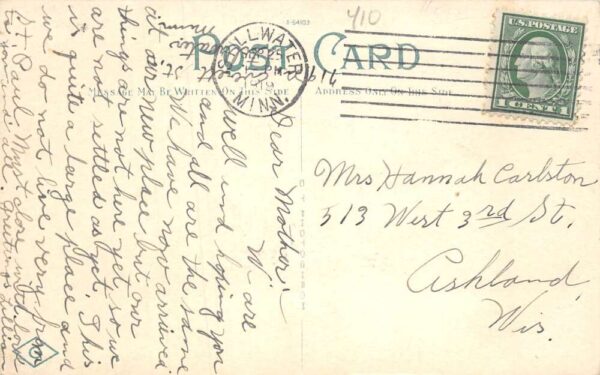 A-64103
410
POST CARD
MESSAGE MAY BE WRITTEN ON THIS SIDE
ADDRESS ONLY ON THIS SIDE
STILLWATER
MINN.
U.S. POSTAGE
1 CENT 1
719
St.
Stillwater
Minn.
Dear Mother:-
We are
well and hoping you
and all are the same
We have now arrived
at our new place but our
things are not here yet, so we
are not settled as yet. This
is quite a large place and
we do not live very far from
St Paul. Must close with love
to you and all. Greetings Lillian
Mrs Hannah Carlston
513 West 3rd St.
Ashland,
Wis.